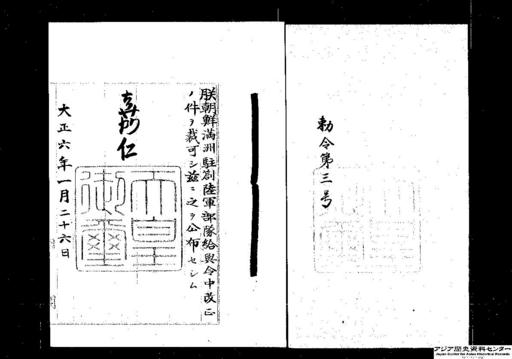 勅令第三号
朕朝鮮満洲駐劄陸軍部隊給与令中改正
ノ件ヲ裁可シ茲ニ之ヲ公布セシム
嘉仁
天皇
御璽
大正六年一月二十六日
アジア歴史資料センター
Japan Center for Asian Historical Records